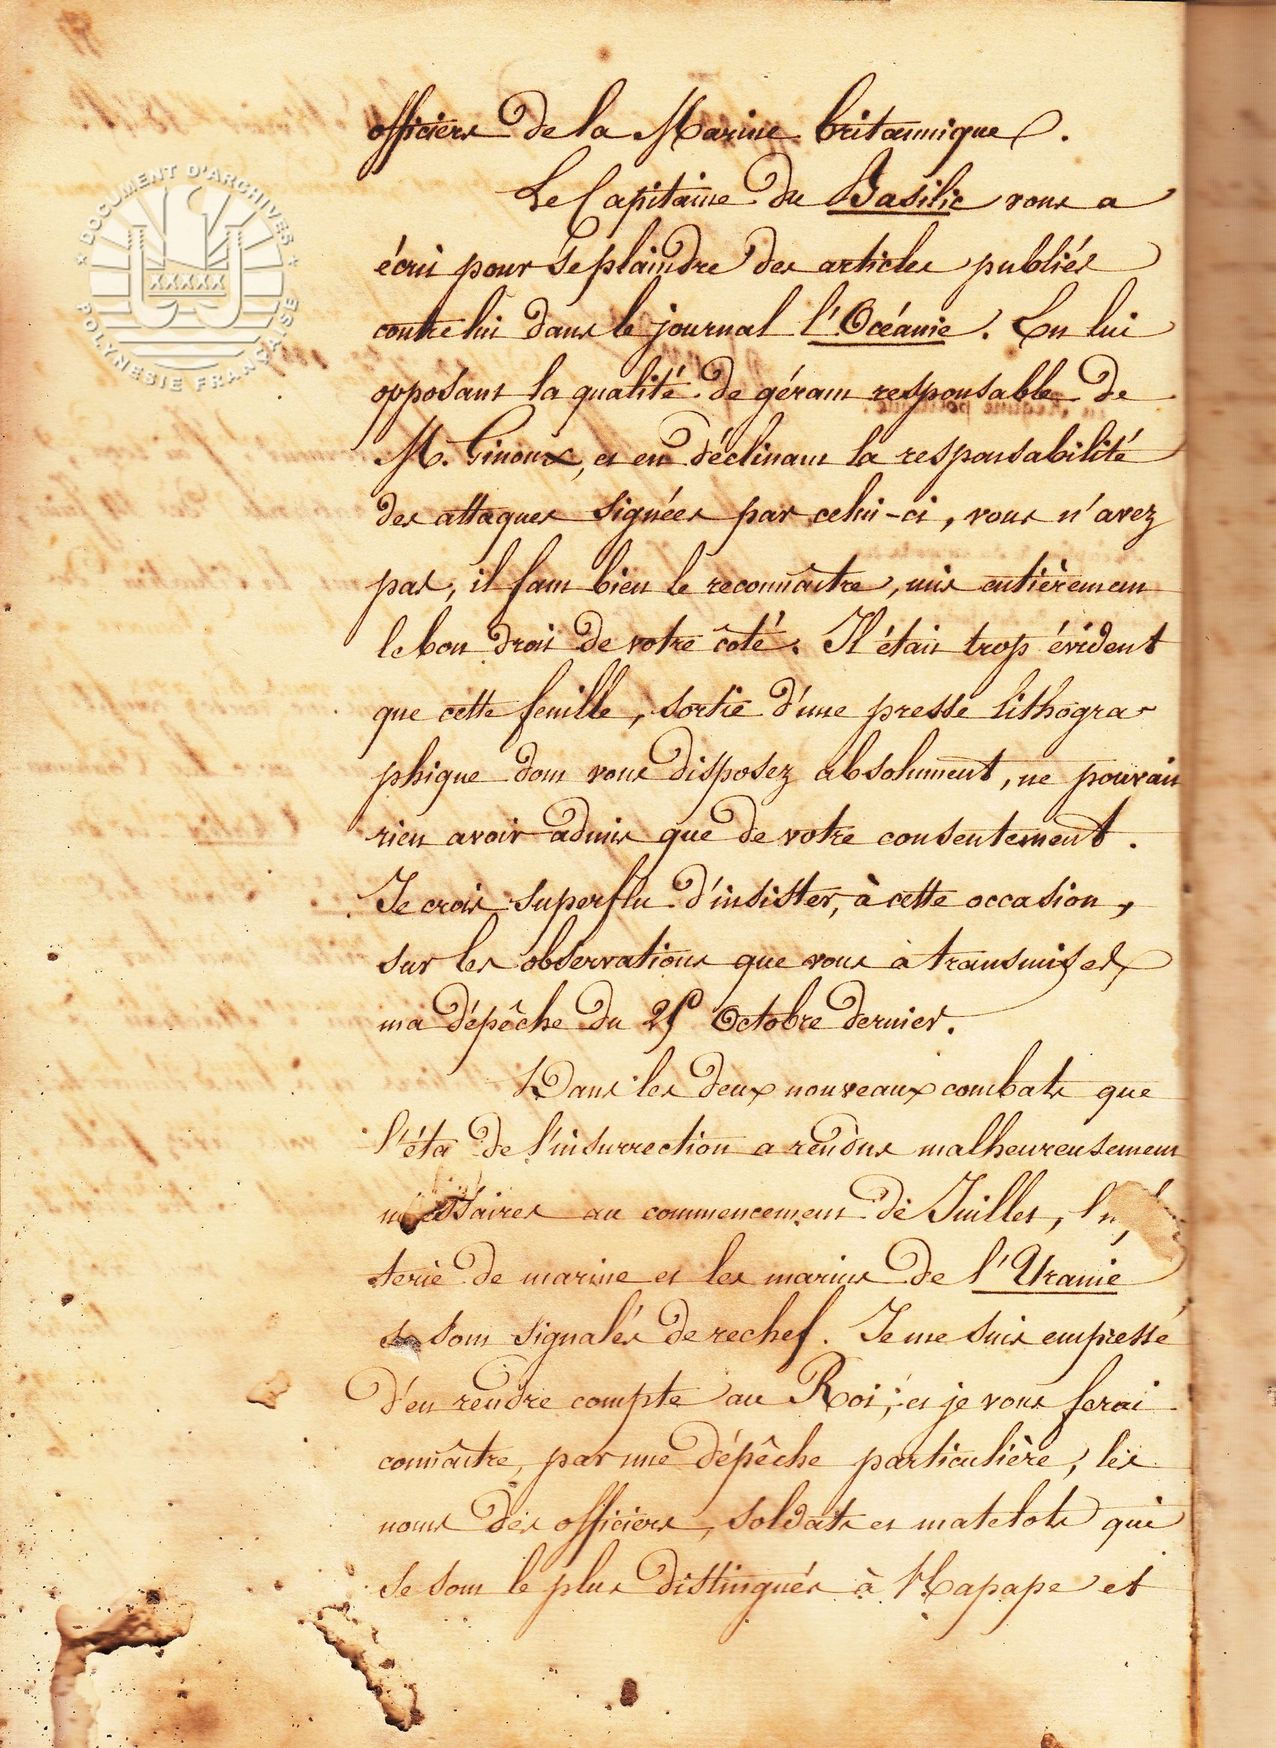 DOCUMENT D'ARCHIVES
XXXXX
POLYNESIE FRANÇAISE
officiers de la Marine britannique.
Le Capitaine du Basilic vous a
écrit pour se plaindre des articles publiés
contre lui dans le journal l'Océanie. En lui
opposant la qualité de gérant responsable de
M. Ginoux, et en déclinant la responsabilité
des attaques signées par celui-ci, vous n'avez
pas, il faut bien le reconnaître, mis entièrement
le bon droit de votre côté. Il était trop évident
que cette feuille, sortie d'une presse lithogra-
phique dont vous disposez absolument, ne pouvait
rien avoir admis que de votre consentement.
Je crois superflu d'insister, à cette occasion,
sur les observations que vous a transmises
ma dépêche du Octobre dernier.
Dans les deux nouveaux combats que
l'état de l'insurrection a rendus malheureusement
nécessaires au commencement de Juillet,
terie de marine et les marins de l'Uranie
se sont signalés derechef. Je me suis empressé
d'en rendre compte au Roi; et je vous ferai
connaître, par une dépêche particulière, les
noms des officiers, soldats et matelots qui
se sont le plus distingués à Hapape et